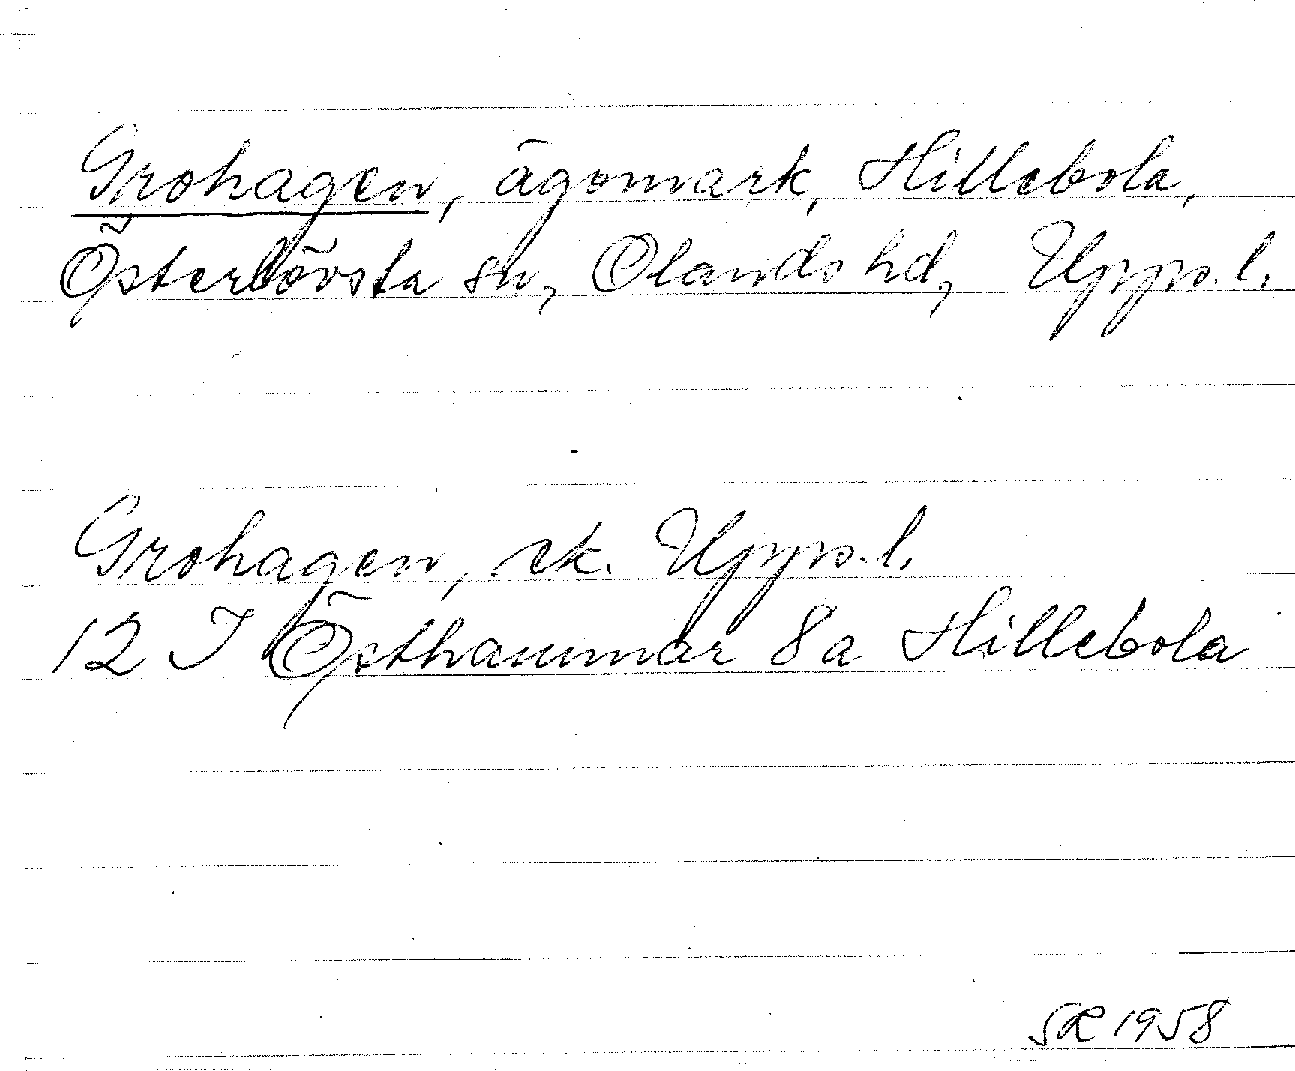 Grohagen, ägomark, Hillebola,
Österlövsta sn, Olands hd, Upps. l.
Grohagen, ek. Upps. l.
12 I Östhammar 8a Hillebola
SR 1958